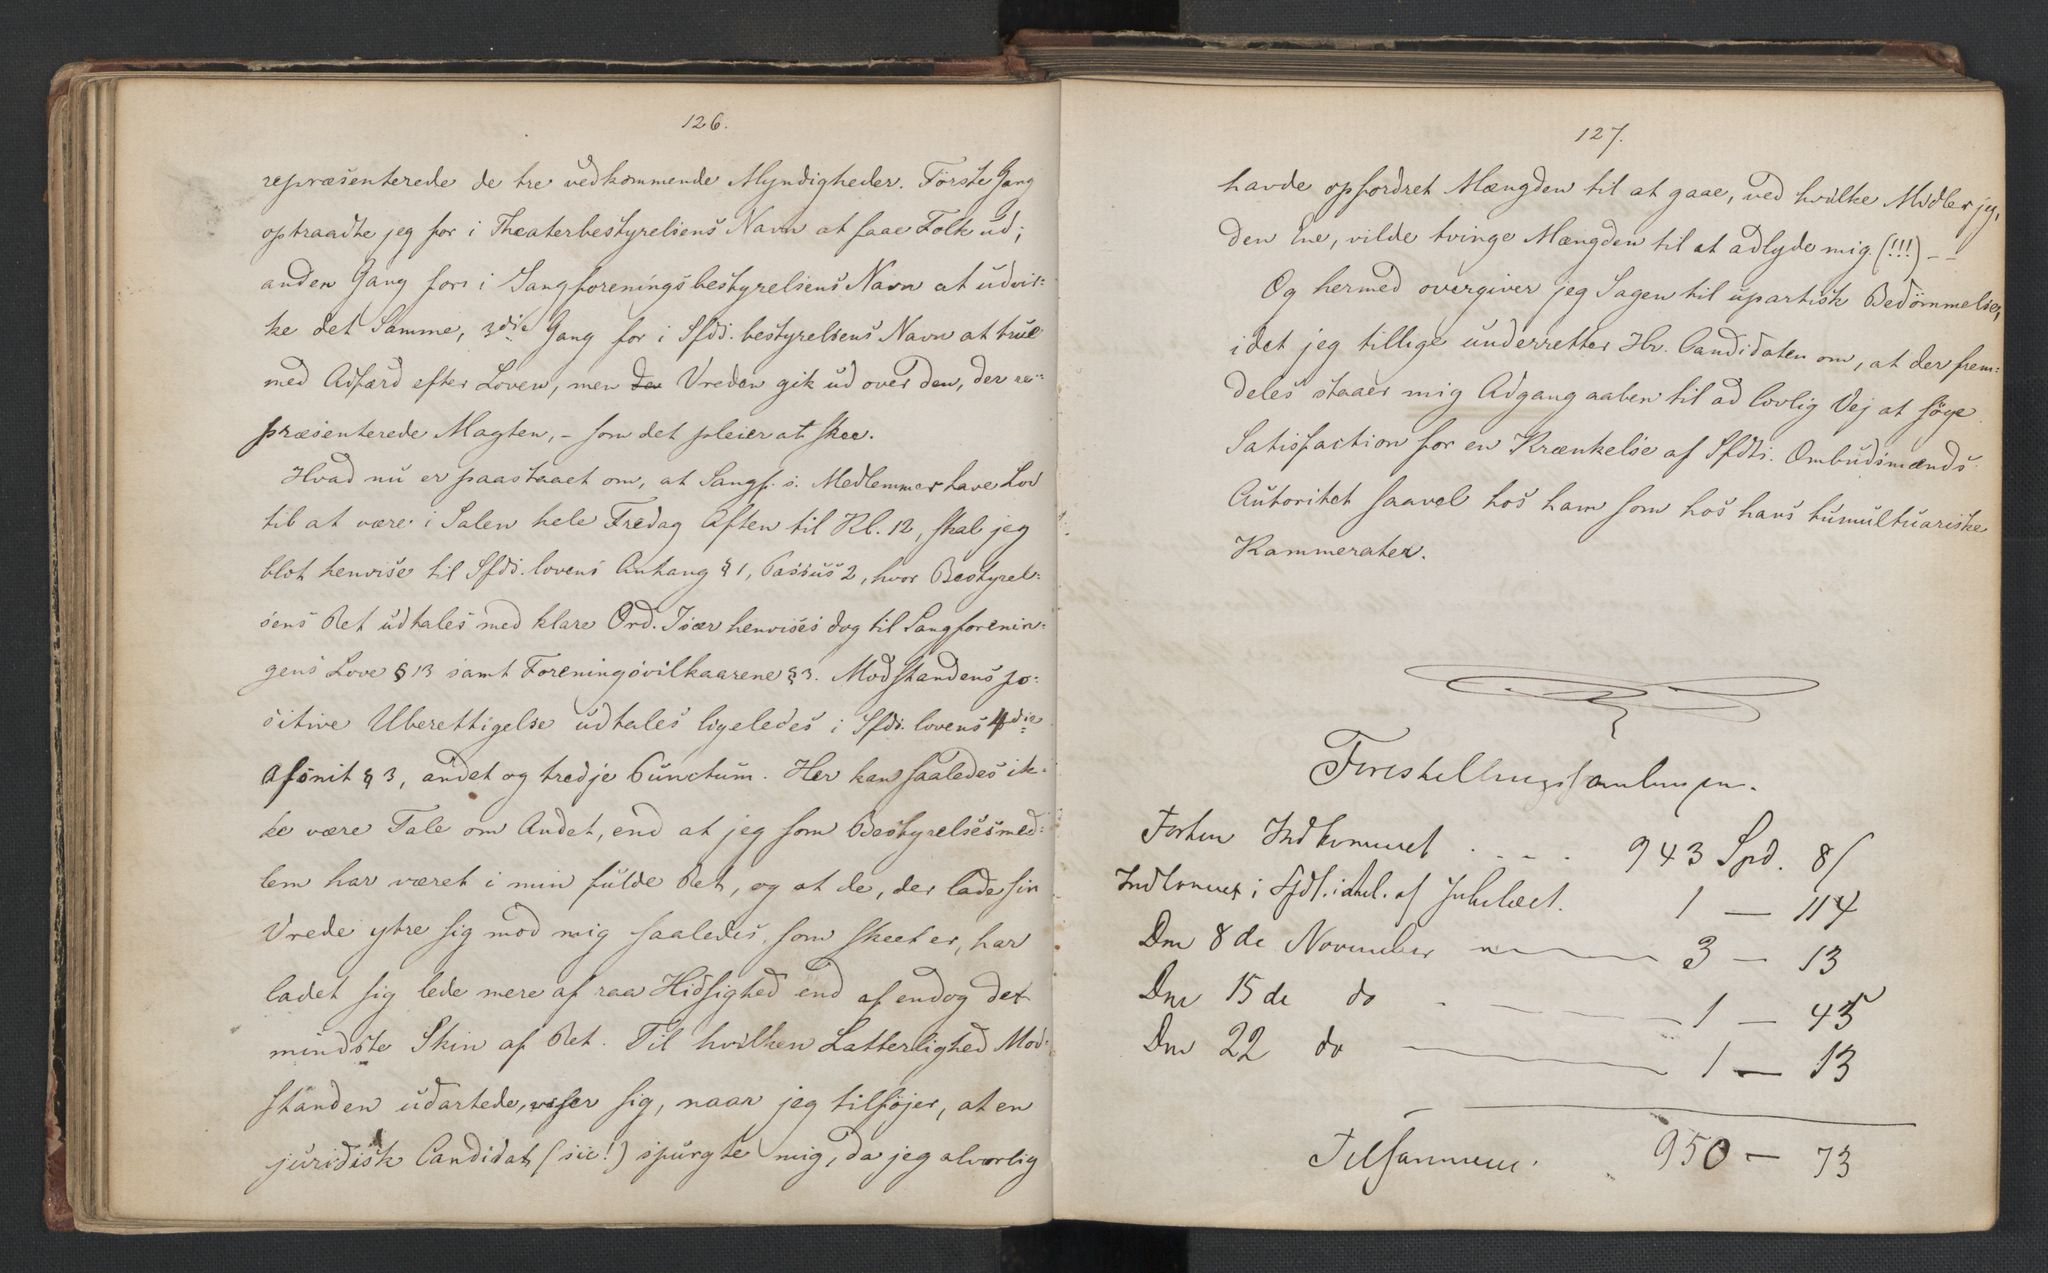 126.
repræsenterede de tre vedkommende Myndigheder. Første Gang
optraadte jeg for i Theaterbestyrelsens Navn at faae Folk ud;
anden Gang for i Sangforeningsbestyrelsens Navn at udvir=
ke det Samme, 3die Gang for i Sfds. bestyrelsens Navn at true
med Adfærd efter Loven, men Vreden gik ud over den, der re=
præsenterede Magten, – som det pleier at skee.
Hvad nu er paastaaet om, at Sangf. s. Medlemmer have Lov
til at være i Salen hele Fredag Aften til Kl. 12, skal jeg
blot henvise til Sfds. lovens Anhang § 1, Passus 2, hvor Bestyrel=
sens Ret udtales med klare Ord. Især henvises dog til Sangforenin=
gens Love § 13 samt Foreningsvilkaarene § 3. Modstandens po=
sitive Uberettigelse udtales ligeledes i Sfds. lovens 4die
Afsnit § 3, andet og tredje Punctum. Her kan saaledes ik=
ke være Tale om Andet, end at jeg som Bestyrelsesmed=
lem har været i min fulde Ret, og at de, der lade sin
Vrede ytre sig mod mig saaledes, som skeet er, har
ladet sig lede mere af raa Hidsighed end af endog det
mindste Skin af Ret. Til hvilken Latterlighed Mod=
standen udartede, viser sig, naar jeg tilføjer, at en
juridisk Candidat (sic!) spurgte mig, da jeg alvorlig
127.
havde opfordret Mængden til at gaae, ved hvilke Midler jeg,
den Ene, vilde tvinge Mængden til at adlyde mig (!!!) – –
Og hermed overgiver jeg Sagen til upartisk Bedømmelse,
idet jeg tillige underretter Hr. Candidaten om, at der frem=
deles staaer mig Adgang aaben til ad lovlig Vej at søge
Satisfaction for en Krænkelse af Sfdts. Ombudsmænds
Autoritet saavel hos ham som hos hans tumultuariske
Kammerater.
Forestillingssamlingen.
Forhen Indkommet . . . . 943 Spd. 8 /
Indkommet i Sfdt. af Jubilæet. 1 — 114
Den 8de November — 3 — 13
Den 15de do — 1 — 45
Den 22 do — 1 — 13
Tilsammen . 950 — 73